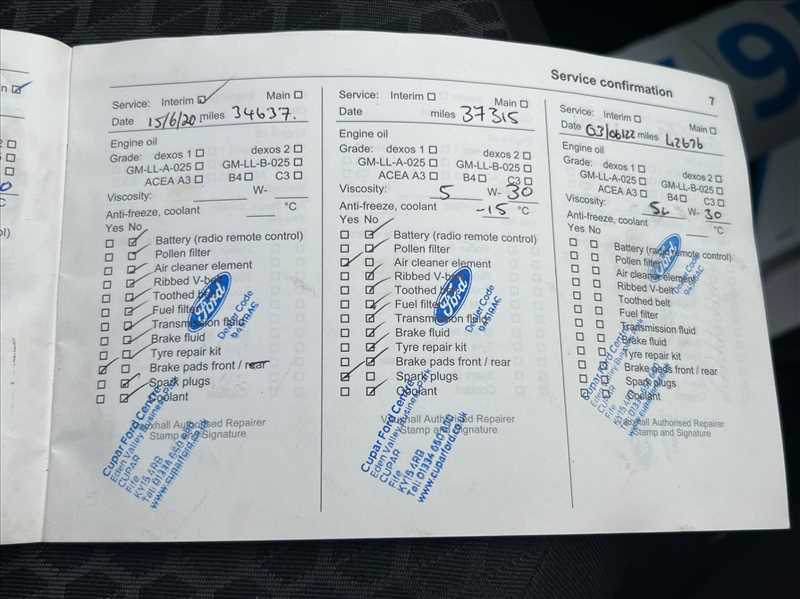 Service confirmation 7
Service: Interim ☑ Main ☐
Date 15/6/20 miles 34637.
Engine oil
Grade: dexos 1 ☐ dexos 2 ☐
GM-LL-A-025 ☐ GM-LL-B-025 ☐
ACEA A3 ☐ B4 ☐ C3 ☐
Viscosity: W-
Anti-freeze, coolant °C
Yes No
Battery (radio remote control)
Pollen filter
Air cleaner element
Ribbed V-belt
Toothed belt
Fuel filter
Transmission fluid
Brake fluid
Tyre repair kit
Brake pads front / rear
Spark plugs
Coolant
Vauxhall Authorised Repairer
Stamp and Signature
Ford
Dealer Code
Cupar Ford Centre
Eden Valley Business Park
CUPAR
Fife
KY15 4RB
Tel: 01334 650 600
www.cuparford.co.uk
Service: Interim ☐ Main ☐
Date miles 37315
Engine oil
Grade: dexos 1 ☐ dexos 2 ☐
GM-LL-A-025 ☐ GM-LL-B-025 ☐
ACEA A3 ☐ B4 ☐ C3 ☐
Viscosity: 5 W-30
Anti-freeze, coolant -15 °C
Yes No
Battery (radio remote control)
Pollen filter
Air cleaner element
Ribbed V-belt
Toothed belt
Fuel filter
Transmission fluid
Brake fluid
Tyre repair kit
Brake pads front / rear
Spark plugs
Coolant
Vauxhall Authorised Repairer
Stamp and Signature
Ford
Dealer Code
Cupar Ford Centre
Eden Valley Business Park
CUPAR
Fife
KY15 4RB
Tel: 01334 650 600
www.cuparford.co.uk
Service: Interim ☐ Main ☐
Date 03/06/22 miles 42676
Engine oil
Grade: dexos 1 ☐ dexos 2 ☐
GM-LL-A-025 ☐ GM-LL-B-025 ☐
ACEA A3 ☐ B4 ☐ C3 ☐
Viscosity: 5w W-30
Anti-freeze, coolant °C
Yes No
Battery (radio remote control)
Pollen filter
Air cleaner element
Ribbed V-belt
Toothed belt
Fuel filter
Transmission fluid
Brake fluid
Tyre repair kit
Brake pads front / rear
Spark plugs
Coolant
Vauxhall Authorised Repairer
Stamp and Signature
Ford
Dealer Code
Cupar Ford Centre